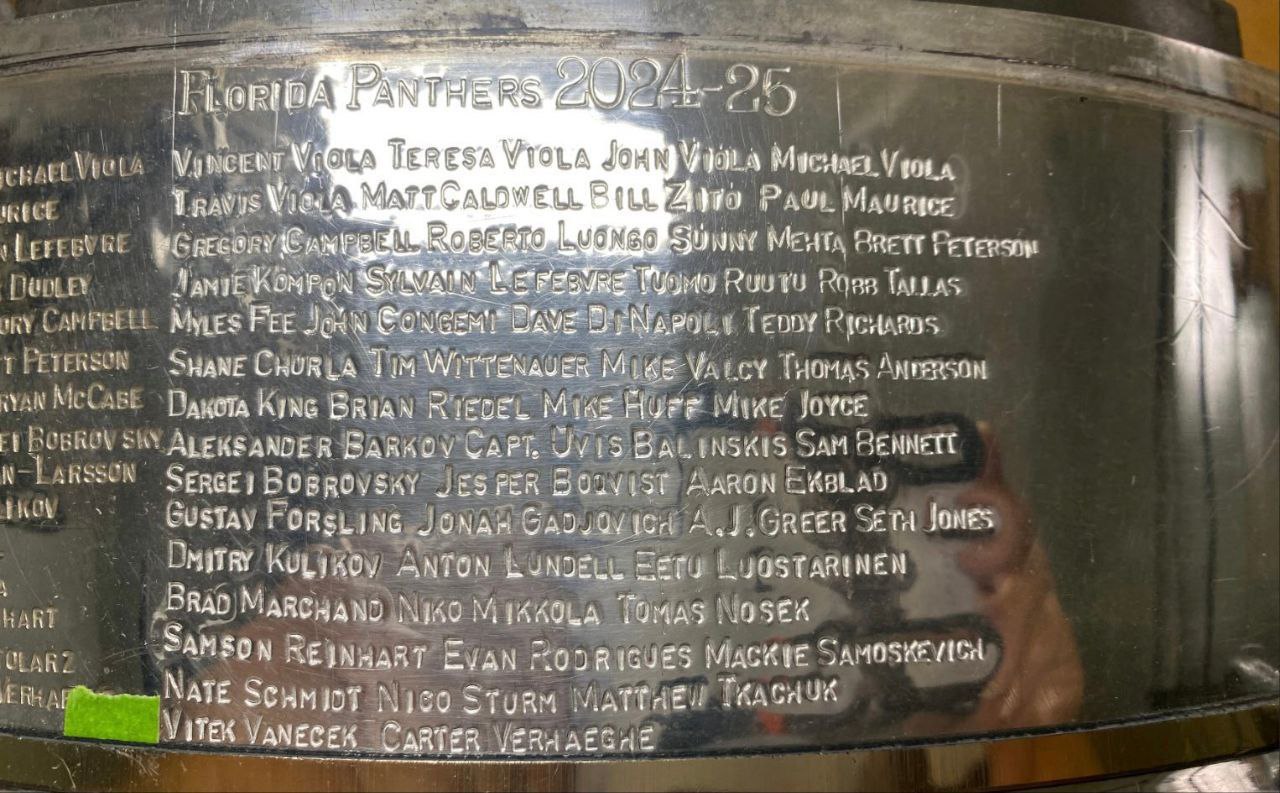 ICHAEL VIOLA
URICE
N LEFEBVRE
DUDLEY
ORY CAMPBELL
T PETERSON
RYAN MCCABE
EI BOBROVSKY
N-LARSSON
IKOV
HART
TOLARZ
VERHAE
FLORIDA PANTHERS 2024-25
VINCENT VIOLA TERESA VIOLA JOHN VIOLA MICHAEL VIOLA
TRAVIS VIOLA MATT CALDWELL BILL ZITO PAUL MAURICE
GREGORY CAMPBELL ROBERTO LUONGO SUNNY MEHTA BRETT PETERSON
JAMIE KOMPON SYLVAIN LEFEBVRE TUOMO RUUTU ROBB TALLAS
MYLES FEE JOHN CONGEMI DAVE DINAPOLI TEDDY RICHARDS
SHANE CHURLA TIM WITTENAUER MIKE VALCY THOMAS ANDERSON
DAKOTA KING BRIAN RIEDEL MIKE HUFF MIKE JOYCE
ALEKSANDER BARKOV CAPT. UVIS BALINSKIS SAM BENNETT
SERGEI BOBROVSKY JESPER BOQVIST AARON EKBLAD
GUSTAV FORSLING JONAH GADJOVICH A.J. GREER SETH JONES
DMITRY KULIKOV ANTON LUNDELL EETU LUOSTARINEN
BRAD MARCHAND NIKO MIKKOLA TOMAS NOSEK
SAMSON REINHART EVAN RODRIGUES MACKIE SAMOSKEVICH
NATE SCHMIDT NICO STURM MATTHEW TKACHUK
VITEK VANECEK CARTER VERHAEGHE